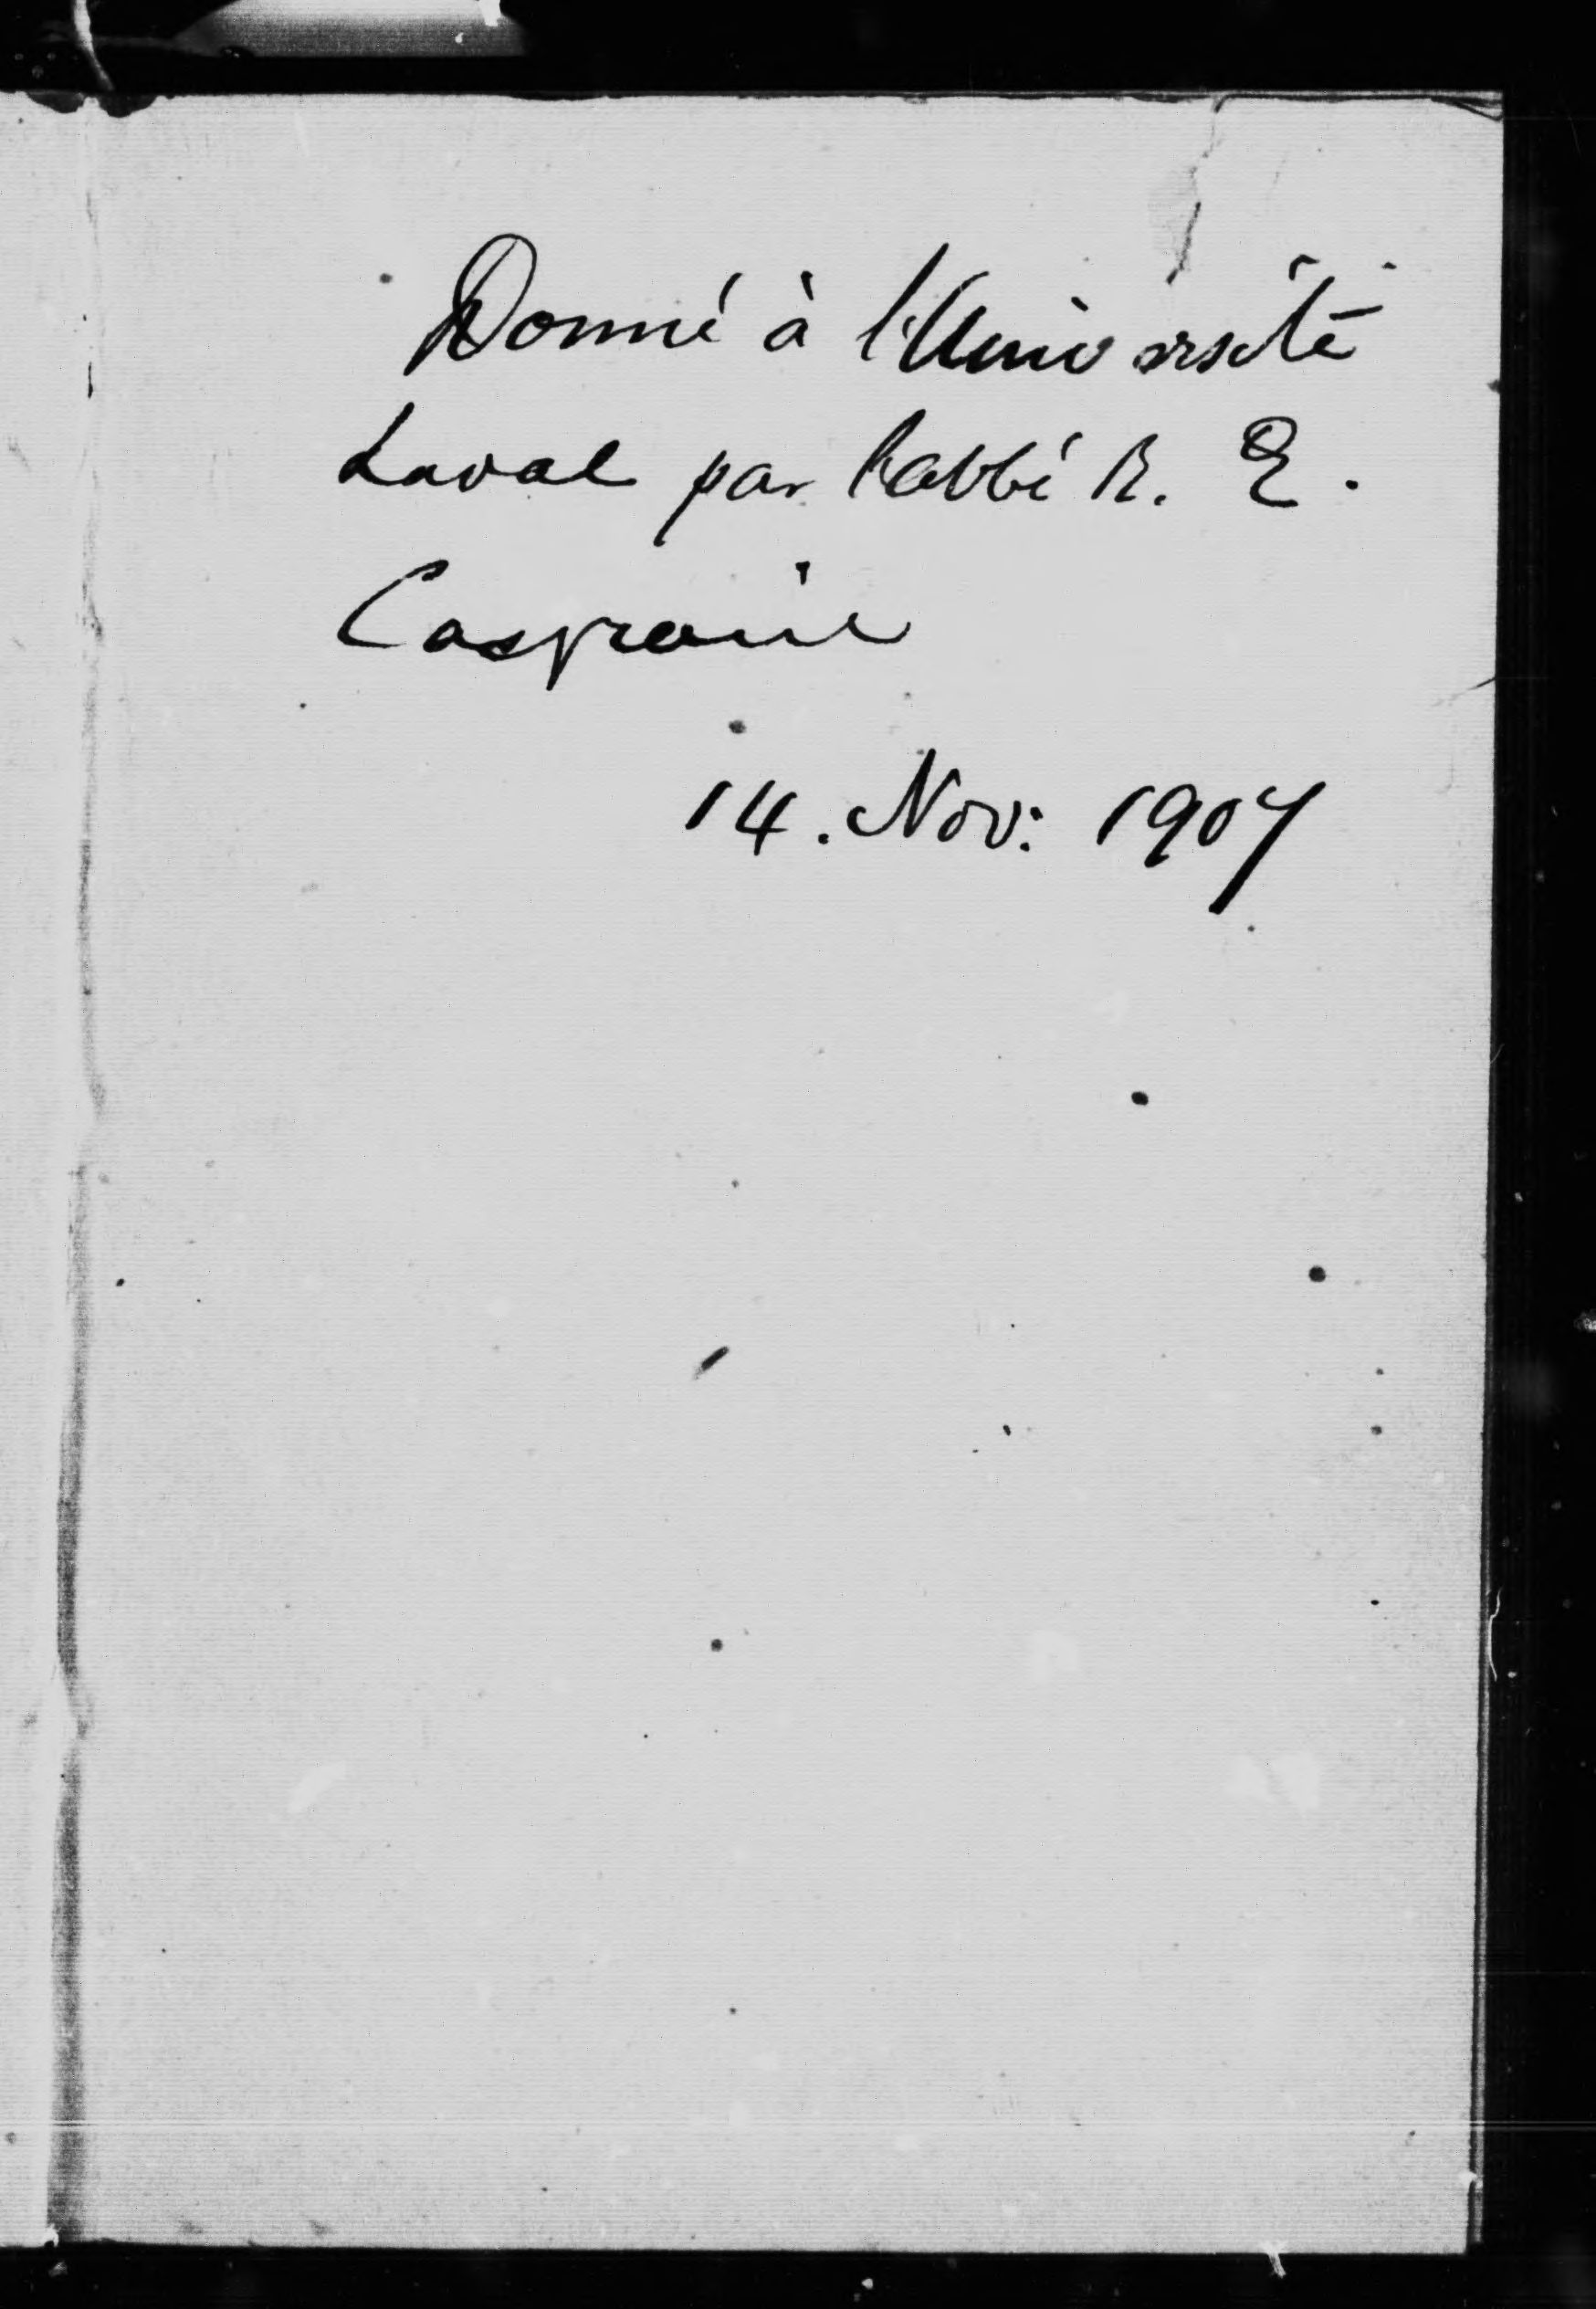 Donné à l'Université
Laval par l'abbé R. E.
Casgrain
14. Nov: 1907